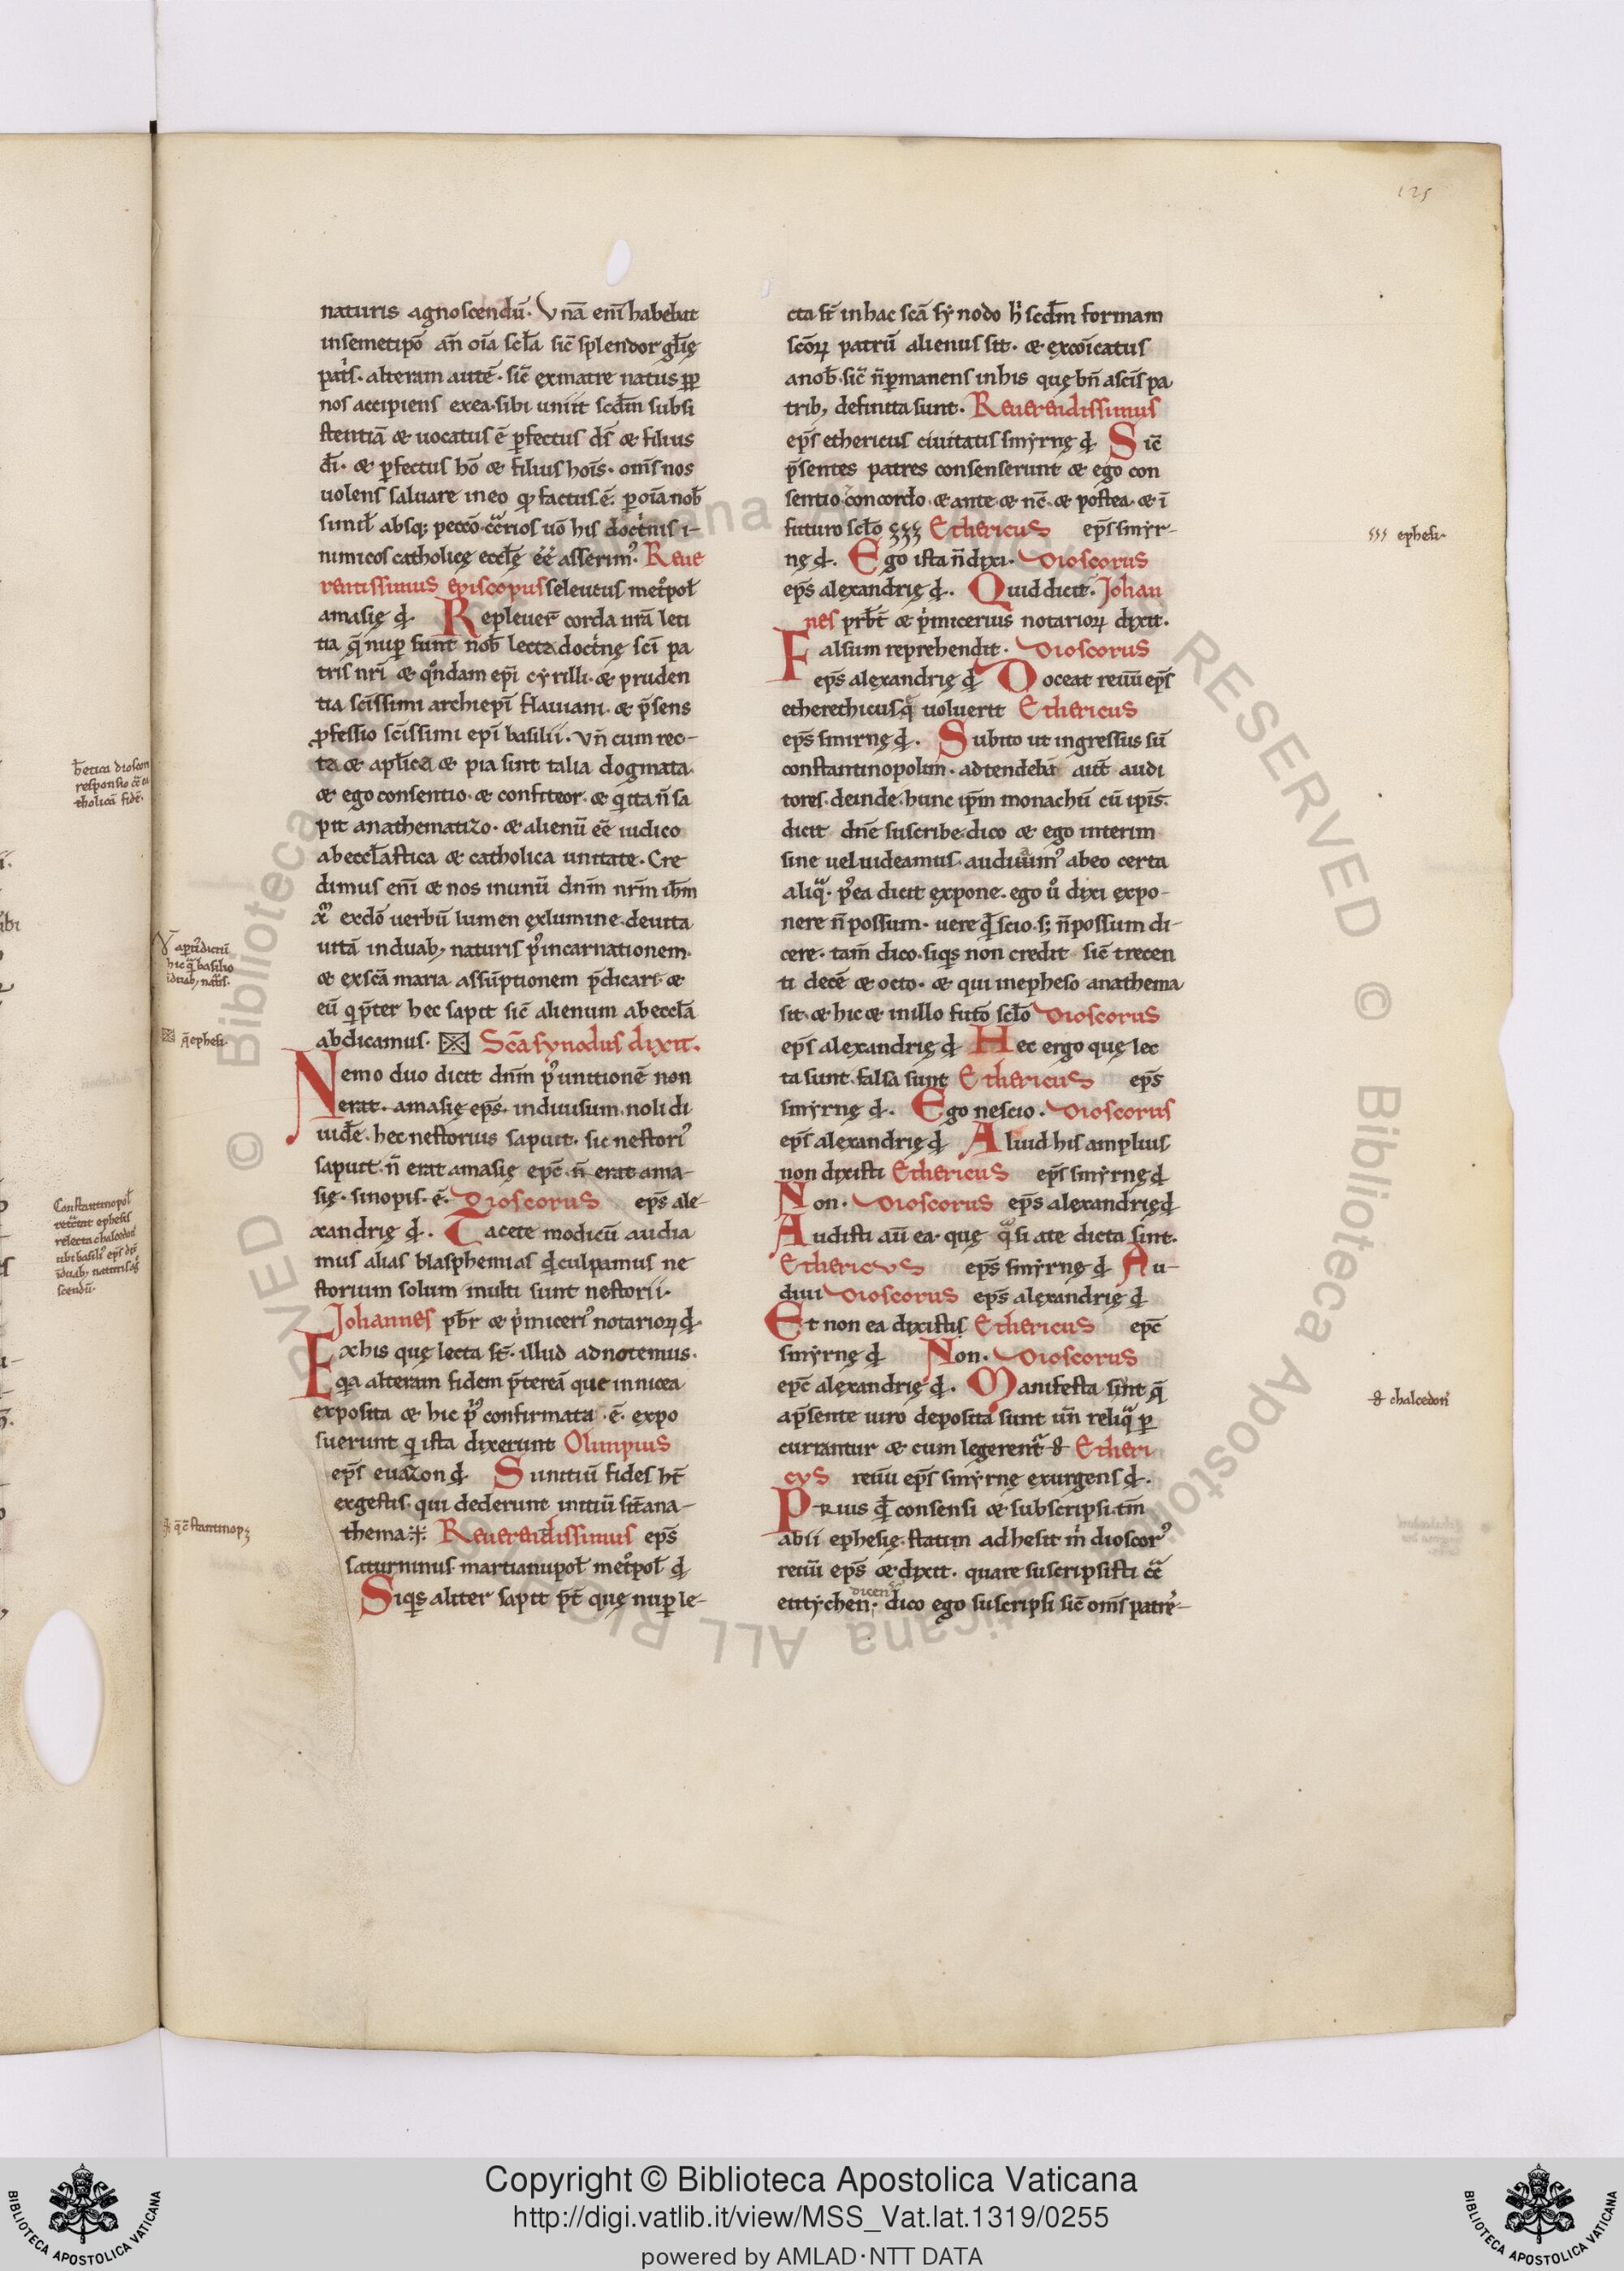 125
naturis agnoscendū. Vnā enī habebat
insemetipō añ oīa scl̄a sic̄ splendor gl̄ię
pat̄s. alteram autē. sic̄ ex matre natus pp̄
nos accipiens exea. sibi uniit scd̄m subsi
stentiā & uocatus ē pfectus d̄s & filius
d̄i. & pfectus hō & filius hoīs. om̄s nos
uolens saluare in eo qđ factus.ē. p oīa nob̄
simil̄ absq; peccō. c̄crios uō his doct'nis i-
nimicos catholicę eccl̄ę éé asserim'. Reue
rentissimus episcopus seleucus met'pol̄
amasię đ. Repleuer̄ corda nr̄a leti
tia q̄ nup sunt nob̄ lecta doct'nę sc̄i pa
tris nr̄i & q°ndam ep̄i cyrilli. & pruden
tia sc̄issimi archiep̄i flauiani. & p̄sens
pfessio sc̄issimi ep̄i basilii. vn̄ cum rec-
ta & apl̄ica & pia sint talia dogmata.
& ego consentio. & confiteor. & q ita n̄ sa
pit anathematizo. & alienū eē iudico
ab eccl̄astica & catholica unitate. Cre
dimus enī & nos in unū dn̄m nr̄m ih̄m
x̄m exdō uerbū lumen exlumine. deuita
uitā induab; naturis p' incarnationem.
& exscā maria assūptionem p̄dicari &
eū q p̄ter hec sapit sic̄ alienum ab eccl̄a
abdicamus. Sc̄a synodus dixit.
Nemo duo dicit dn̄m p' unitionē non
erat. amasię ep̄s. indiuisum. noli di
uid̄e. hec nestorius sapuit. sic nestori'
sapuit. n̄ erat amasię ep̄c. n̄ erat ama-
się. sinopis. ē. Dioscorus ep̄s ale-
xandrię đ. Tacete modicū audia
mus alias blasphemias qđ culpamus ne
storium solum multi sunt nestorii.
Johannes pb̄r & p'miceri' notarioꝝ đ.
Ex his quę lecta st̄. illud adnotemus.
qa alteram fidem p̄tereā que in nicea
exposita & hic p' confirmata .ē. expo
suerunt q ista dixerunt Olimpius
ep̄s euazon đ Sunitiū fides ht̄
exgestis. qui dederunt initiū sit ana-
thema. Reuerendissimus ep̄s
saturninus. martianupol̄ met'pol̄ đ
Siqs aliter sapit p̄t quę nup le-
cta st̄ in hac scā synodo h' scd̄m formam
scōꝝ patrū alienus sit. & excōicatus
a nob̄. sic̄ n̄ pmanens in his quę bn̄ a sc̄is pa
trib; definita sunt. Reuerendissimus
ep̄s ethericus ciuitatis smyrnę đ Sic̄
p̄sentes patres consenserunt & ego con
sentio. concordo. & ante & nc̄. & postea. & ī
futuro scl̄o Ethericus ep̄s smyr-
nę đ. Ego ista n̄ dixi. Dioscorus
ep̄s alexandrię đ. Quid dicit. Johan
nes prb̄t & p'micerius notarioꝝ dixit.
Falsum reprehendit. Dioscorus
ep̄s alexandrię đ Doceat reuū ep̄s
etherethicus q̄ uoluerit Ethericus
ep̄s smirnę đ. Subito ut ingressus sū
constantinopolim. adtendebā aut̄ audi
tores. deinde. hunc ip̄m monachū cū ip̄is.
dicit dn̄e suscribe. dico & ego interim
sine uel uideamus. audiuim' abeo certa
aliq̄. p'ea dicit expone. ego u° dixi expo-
nere n̄ possum. uere qđ scio. s; n̄ possum di-
cere. tam̄ dico. siqs non credit sic̄ trecen
ti decē & octo. & qui in epheso anathema
sit. & hic & in illo fut̄o scl̄o Dioscorus
ep̄s alexandrię đ Hec ergo quę lec
ta sunt. falsa sunt Ethericus ep̄s
smyrnę đ. Ego nescio. Dioscorus
ep̄s alexandrię đ Aliud his amplius
non dixisti Ethericus ep̄s smyrnę đ
Non. Dioscorus ep̄s alexandrię đ
Audisti aū ea. quę q̄si a te dicta sint.
Ethericus ep̄s smyrnę đ Au-
diui Dioscorus ep̄s alexandrię đ
Et non ea dixistis Ethericus ep̄c
smyrnę đ Non. Dioscorus
ep̄c alexandrię đ. Manifesta sint q̄
ap̄sente uiro deposita sunt un̄ reliq̄ p
currantur & cum legerent̄ Etheri
cus reuū ep̄s smyrnę exurgens đ.
Prius qđ consensi & subscripsi. tm̄
abii ephesię. statim adhesit m' dioscor'
reuū ep̄s & dixit. quare suscripsisti c̄c̄
eutychen. dicens dico ego suscripsi sic̄ om̄s patr̄-
ephesi.
chalcedon'
q̄ ephesi.
q̄ c̄stantinop
Constantinopol̄
Copyright © Biblioteca Apostolica Vaticana
http://digi.vatlib.it/view/MSS_Vat.lat.1319/0255
powered by AMLAD·NTT DATA
BIBLIOTECA APOSTOLICA VATICANA
BIBLIOTECA APOSTOLICA VATICANA
© Biblioteca Apostolica Vaticana ALL RIGHTS RESERVED